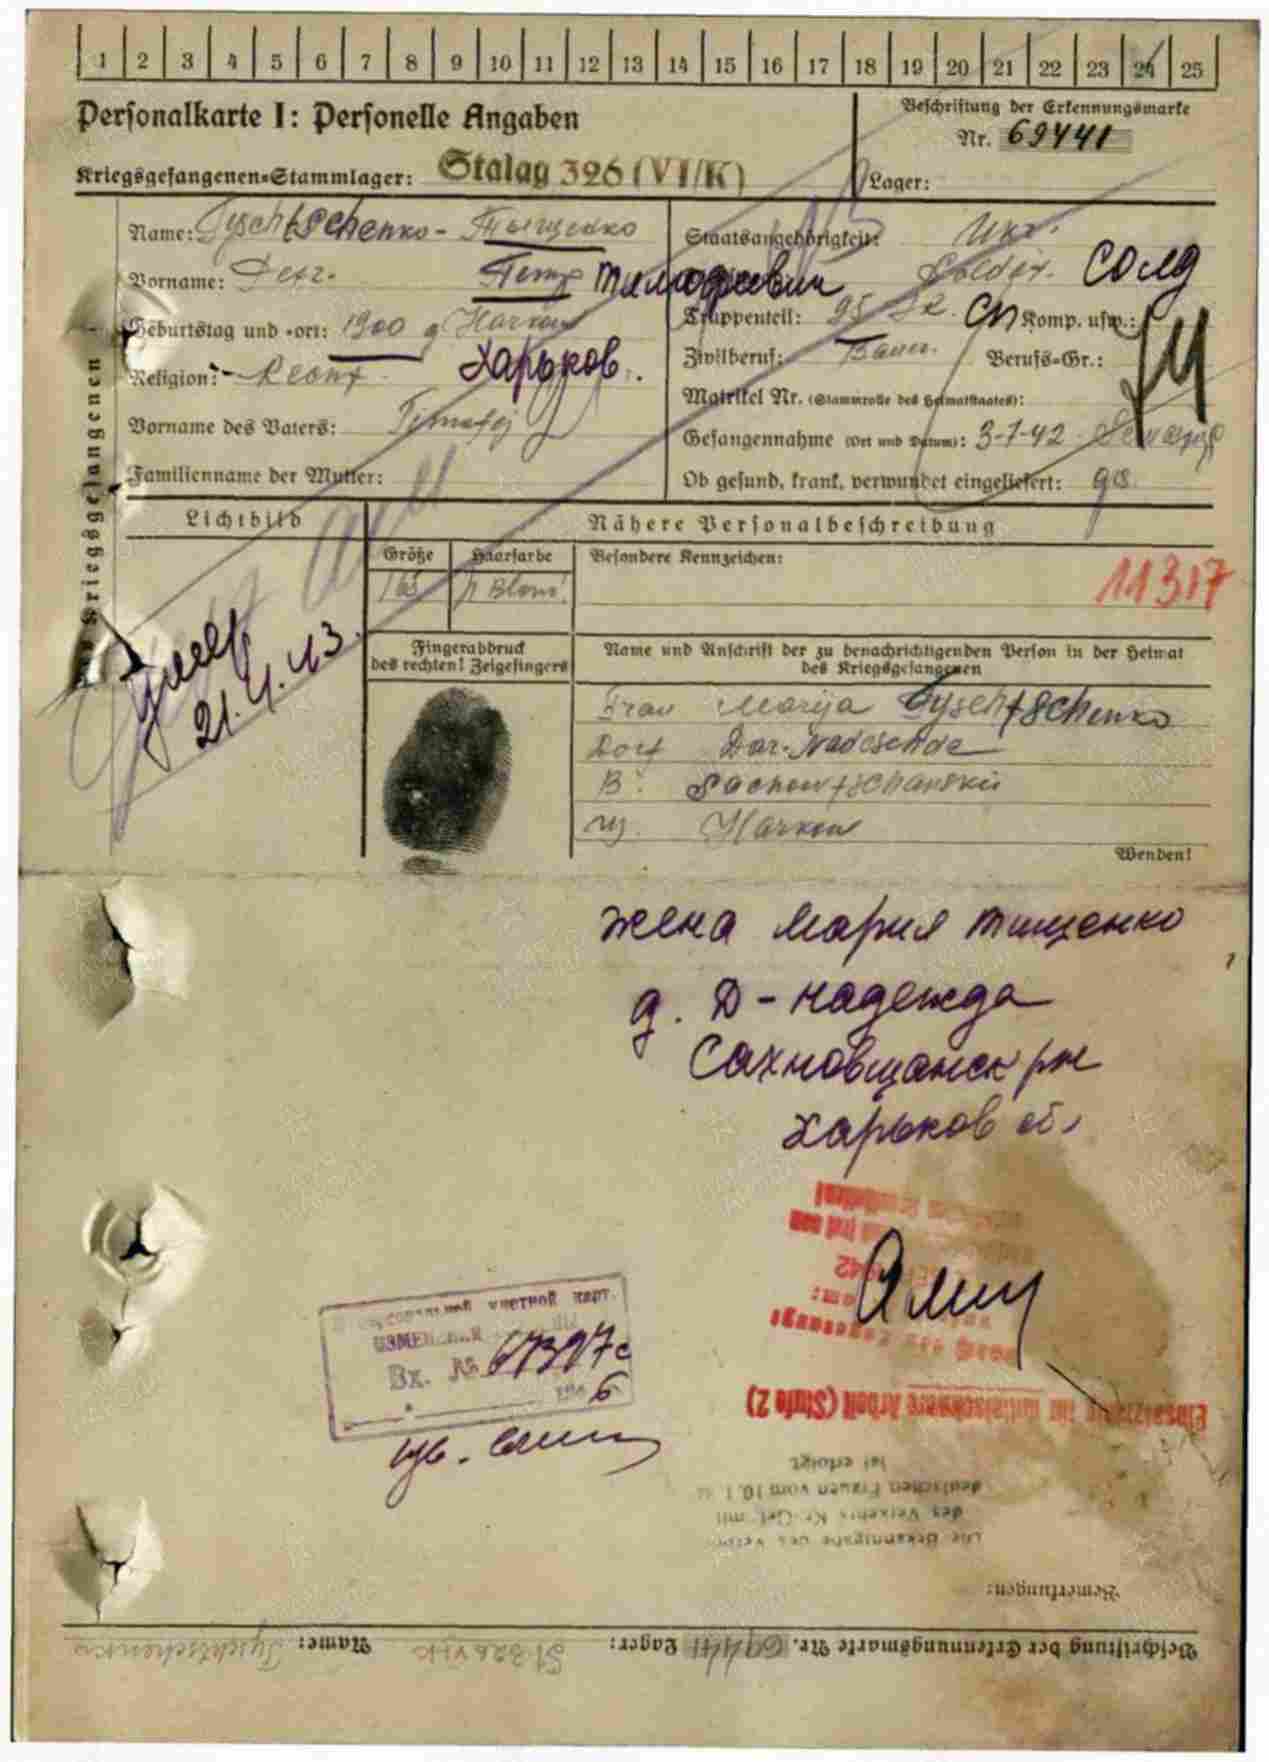 1 2 3 4 5 6 7 8 9 10 11 12 13 14 15 16 17 18 19 20 21 22 23 24 25
Personalkarte I: Personelle Angaben
Beschriftung der Erkennungsmarke
Nr. 69441
Kriegsgefangenen-Stammlager: Stalag 326 (VI/K)
Lager:
des Kriegsgefangenen
Name: Tyschtschenko - Тыщенко
Vorname: Petr. Петр Тимофеевич
Geburtstag und -ort: 1900 Harkow
Харьков.
Religion:
Vorname des Vaters: Timofej
Familienname der Mutter:
Staatsangehörigkeit: Ukr.
Soldat. солд
Truppenteil: 95 сп Komp. usw.:
Zivilberuf: Bauer. Berufs-Gr.:
Matrikel Nr. (Stammrolle des Heimatstaates):
Gefangennahme (Ort und Datum): 3-7-42
Ob gesund, krank, verwundet eingeliefert: ges.
Lichtbild
Nähere Personalbeschreibung
Größe
165
Haarfarbe
Besondere Kennzeichen:
11317
умер
21.4.43.
Fingerabdruck
des rechten! Zeigefingers
Name und Anschrift der zu benachrichtigenden Person in der Heimat
des Kriegsgefangenen
Frau Marija Tyschtschenko
Dorf Dar-Nadeschda
Sachowtschanskii
Harkow
Wenden!
жена Мария Тищенко
д. Д-надежда
Сахновщанск рн
Харьков об
учетной карт.
Вх. № 67397с
Einsatzfähig für mittelschwere Arbeit (Stufe 2)
ist erfolgt
deutschen Frauen vom 10.1.
des Verkehrs Kr.-Gef. mit
Die Bekanntgabe des
Bemerkungen:
Beschriftung der Erkennungsmarke Nr. 69441 Lager: St 326 VI K Name: Tyschtschenko